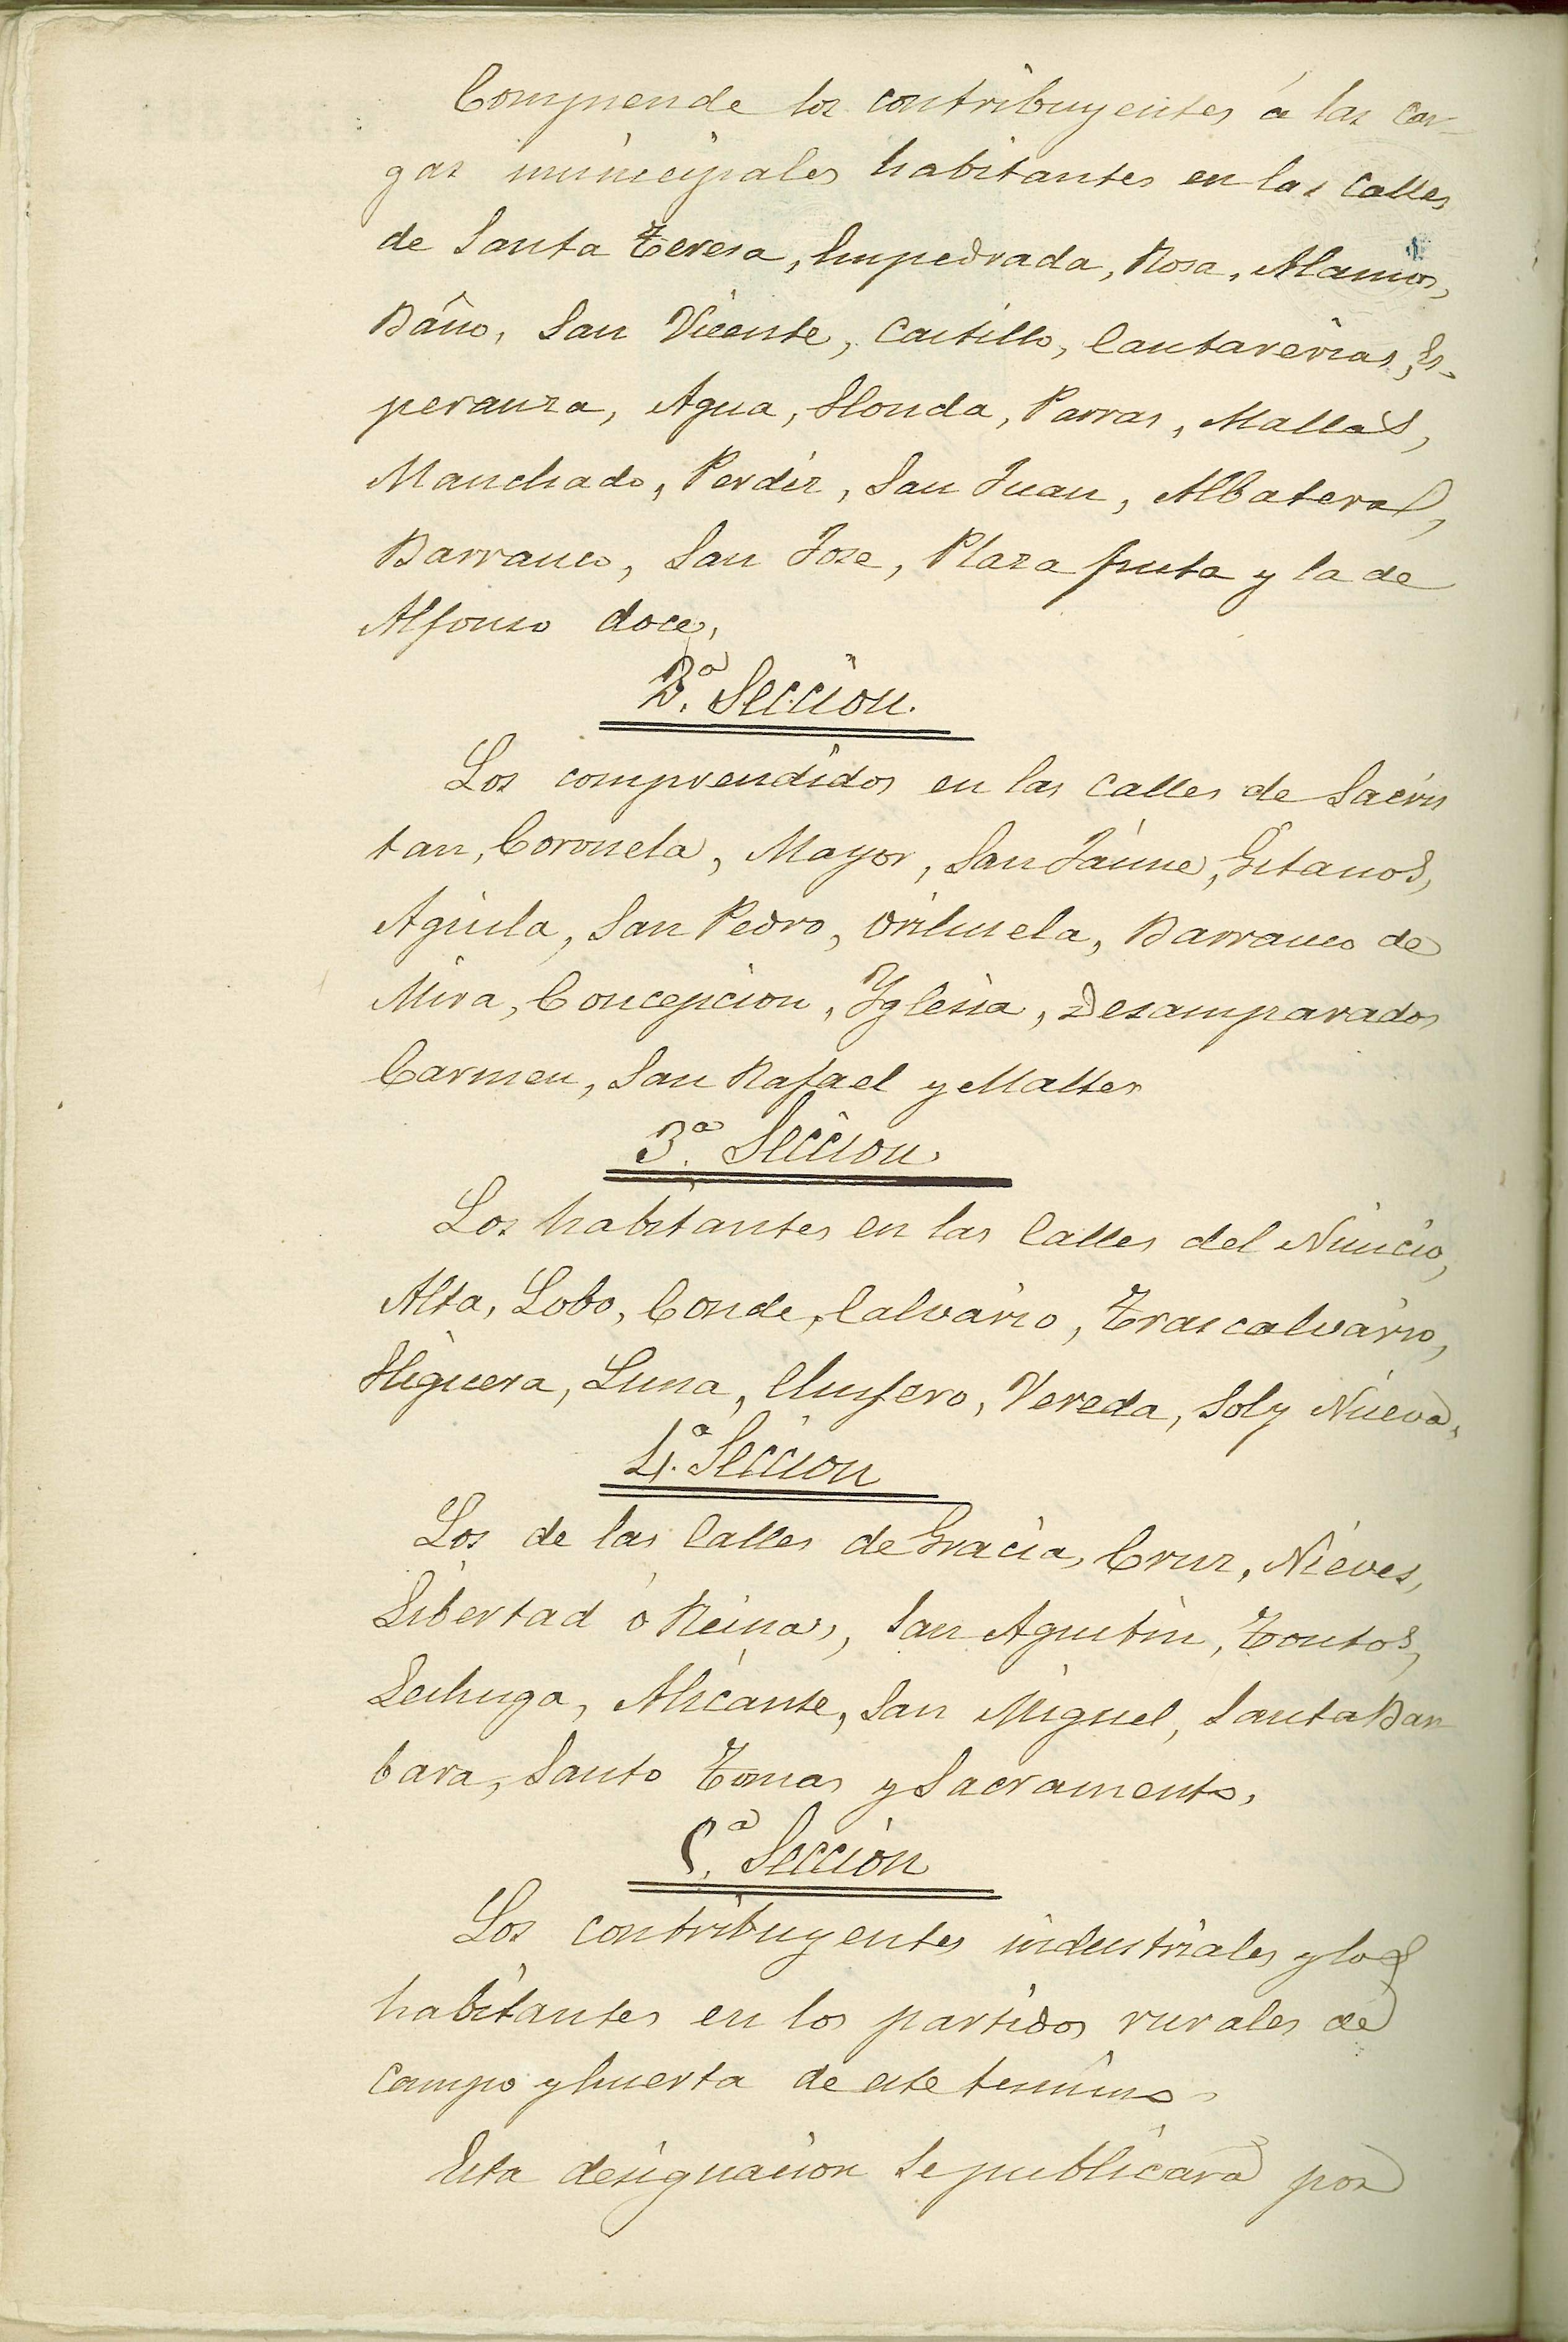 Comprende los contribuyentes á las car-
gas municipales habitantes en las calles
de Santa Teresa, Empedrada, Rosa, Alamos,
Baño, San Vicente, Castillo, Cantarerias, Es-
peranza, Agua, Honda, Parras, Mallas,
Manchado, Perdiz, San Juan, Albatera,
Barranco, San Jose, Plaza fruta y la de
Alfonso doce,
2ª. Seccion.
Los comprendidos en las calles de Sacris
tan, Coronela, Mayor, San Jaime, Gitanos,
Aguila, San Pedro, Orihuela, Barranco de
Mira, Concepcion, Yglesia, Desamparados
Carmen, San Rafael y Maltes
3ª. Seccion.
Los habitantes en las Calles del Nuncio,
Alta, Lobo, Conde, Calvario, Trascalvario,
Higuera, Luna, Chusfero, Vereda, Sol y Nueva,
4ª. Seccion
Los de las Calles de Gracia, Cruz, Nieves,
Libertad ó Reinas, San Agustin, Tontos,
Lechuga, Alicante, San Miguel, Santa Bar
bara, Santo Tomas y Sacramento,
5ª. Seccion
Los contribuyentes industriales y los
habitantes en los partidos rurales de
campo y huerta de este termino.
Esta designacion se publicara por